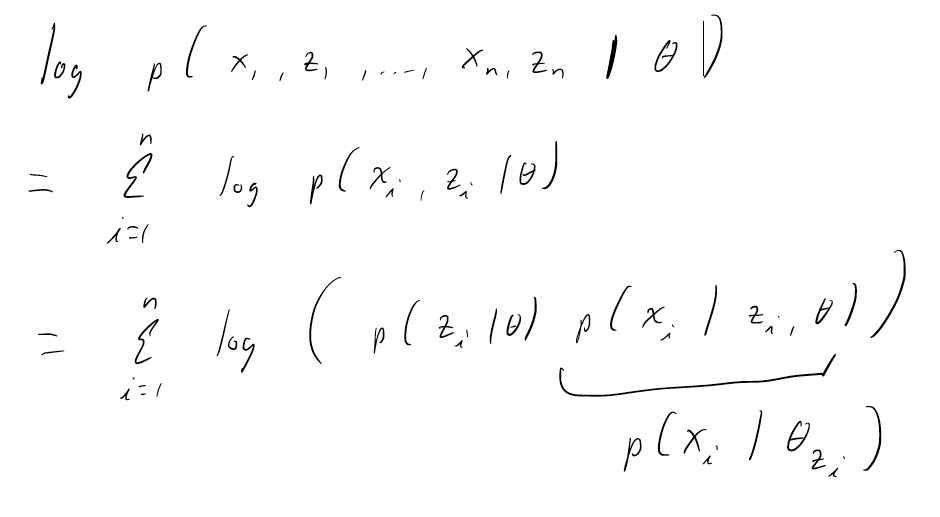 log p( x₁, z₁, ..., xₙ, zₙ | θ )
= Σ_{i=1}^{n} log p( x_i, z_i | θ )
= Σ_{i=1}^{n} log ( p( z_i | θ ) p( x_i | z_i, θ ) )
p( x_i | θ_{z_i} )